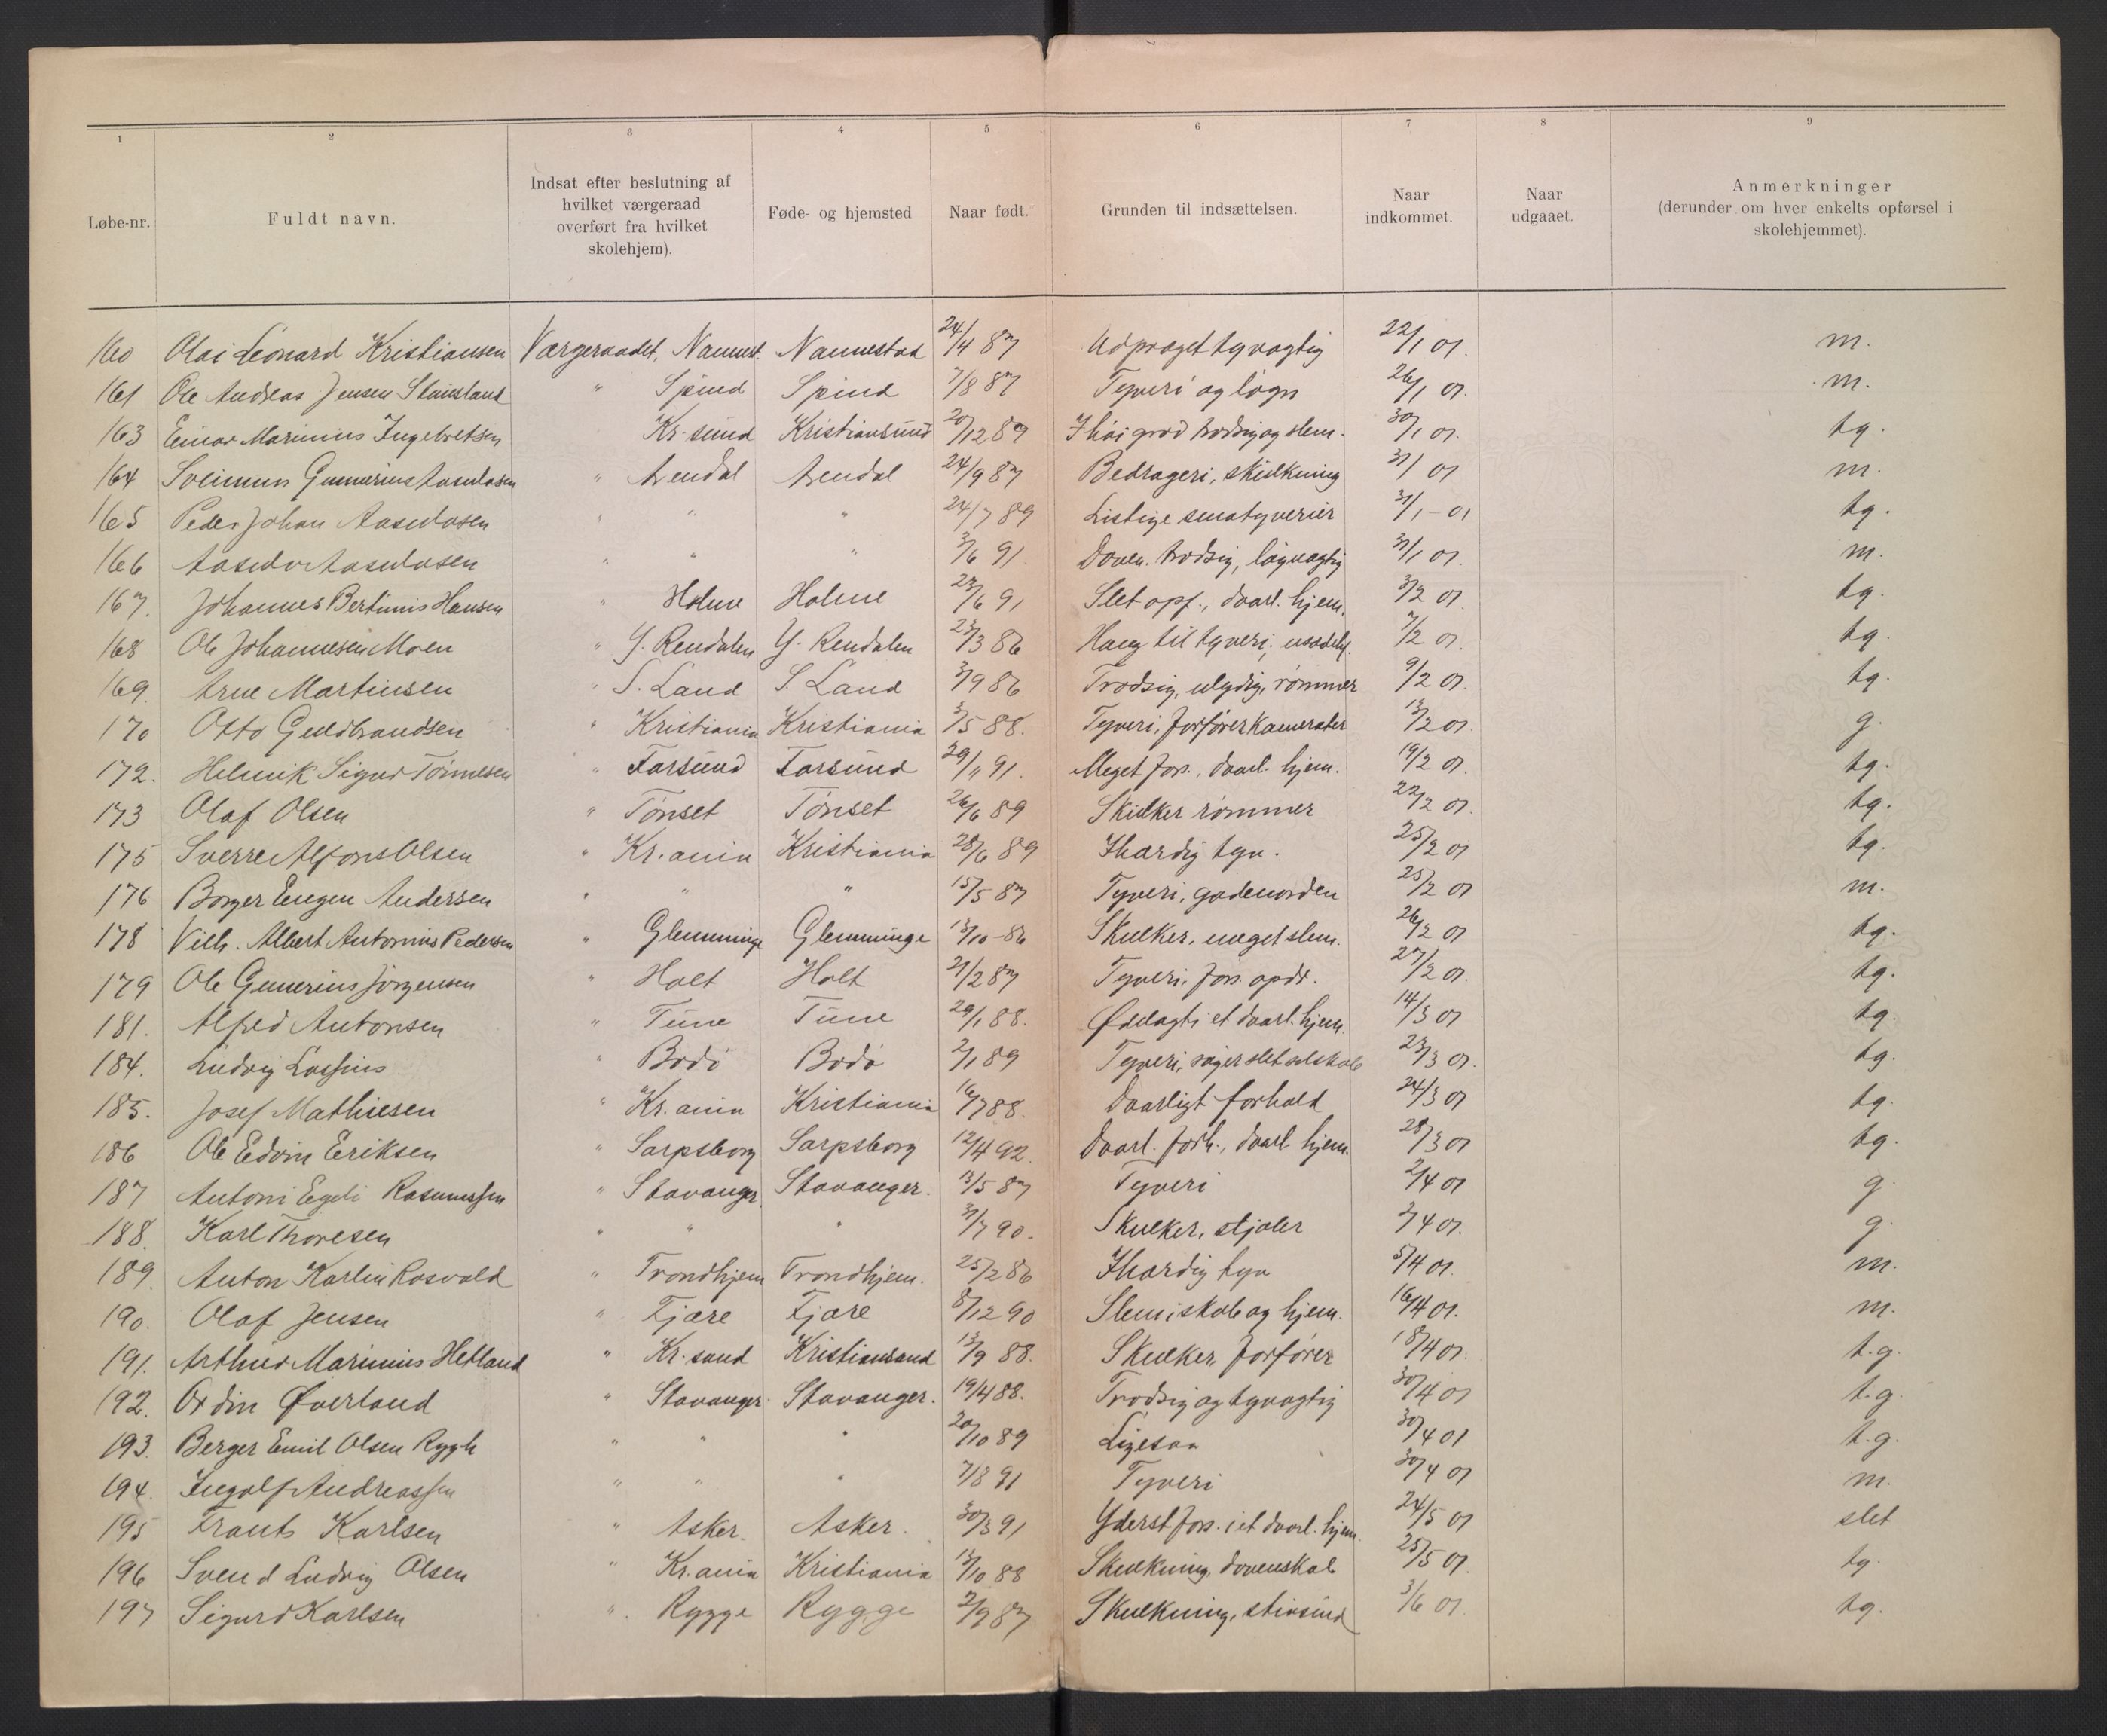 1 2 3 4 5 6 7 8 9
Løbe-nr. Fuldt navn. Indsat efter beslutning af hvilket værgeraad overført fra hvilket skolehjem). Føde- og hjemsted Naar født. Grunden til indsættelsen. Naar indkommet. Naar udgaaet. Anmerkninger (derunder om hver enkelts opførsel i skolehjemmet).
160 Olai Leonard Kristiansen Værgeraadet, Nannest. Nannestad 24/4 87 Udpræget tyvagtig 22/1 01. m.
161 Ole Andreas Jensen Stainsland " Spind Spind 7/8 87 Tyveri og løgn 26/1 01. m.
163 Einar Marinius Ingebretsen Kr. sund Kristiansund 20/12 89 I høi grad trodsig og slem. 30/1 01. tg.
164 Sveinun Gunnerius Aasulvsen " Arendal Arendal 24/9 87 Bedrageri, skulkning 31/1 01 m.
165 Peder Johan Aasulvsen " " " 24/7 89 Listige smatyverier 31/1 - 01 tg.
166 Aasulv Aasulvsen " " " 3/6 91 Doven. trodsig, løgnagtig 31/1 01. m.
167. Johannes Bertinius Hansen " Holme Holme 23/6 91 Slet opf., daarl. hjem. 3/2 01 tg.
168 Ole Johannesen Moen " Y. Rendalen Y. Rendalen 23/3 86 Hang til tyveri, usædel. 7/2 01. tg.
169. Arne Martinsen " S. Land S. Land 3/9 86 Trodsig, ulydig, rømmer 9/2 01. tg.
170 Otto Guldbrandsen " Kristiania Kristiania 3/5 88. Tyveri, forfører kamerater 13/2 01. g.
172. Helmik Sigurd Tønnesen " Farsund Farsund 29/11 91. Meget fors., daarl. hjem. 19/2 01. tg.
173 Olaf Olsen " Tønset Tønset 26/6 89 Skulker rømmer 22/2 01. tg.
175 Sverre Alfons Olsen " Kr.ania Kristiania 28/6 89 Ihærdig tyv. 25/2 01 tg.
176 Borger Eugen Andersen " " " 15/5 87 Tyveri, gadeuorden 25/2 01 m.
178 Vilh. Albert Antonius Pedersen " Glemminge Glemminge 13/10 - 86 Skulker, meget slem. 26/2 01 tg.
179 Ole Gunerius Jørgensen " Holt Holt 21/2 87 Tyveri, fors. opdr. 27/2 01. tg.
181. Alfred Antonsen " Tune Tune 29/1 88. Ødelagt i et daarl. hjem. 14/3 01 tg.
184. Ludvig Lossius " Bodø Bodø 2/1 89 Tyveri, søger slet selskab 23/3 01. tg.
185. Josef Mathiesen " Kr. ania Kristiania 16/7 88. Daarligt forhold 24/3 01 tg.
186 Ole Edvin Eriksen " Sarpsborg Sarpsborg 12/4 92. Daarl. forh., daarl. hjem. 28/3 01 tg.
187 Antoni Egeli Rasmussen " Stavanger. Stavanger. 13/5 87 Tyveri 2/4 01 g.
188. Karl Thoresen " " " 31/7 90. Skulker, stjæler 2/4 01. g.
189. Anton Karlin Rosvold " Trondhjem Trondhjem. 25/2 86 Ihærdig tyv 5/4 01. m.
190. Olaf Jensen " Fjære Fjære 8/12 90 Slem i skole og hjem. 16/4 01. m.
191. Arthur Marinius Hetland " Kr. sand Kristiansand 13/9 88. Skulker, forfører 18/4 01. t.g.
192. Ordin Øverland " Stavanger. Stavanger. 19/4 88. Trodsig og tyvagtig 30/4 01 t.g.
193. Berger Emil Olsen Rygh " " " 20/10 89 Ligesaa 30/4 01 t.g.
194. Ingolf Andreassen " " " 7/8 91 Tyveri 30/4 01 m.
195 Frants Karlsen " Asker. Asker. 30/3 91 Yderst fors. i et daarl. hjem. 24/5 01 slet
196 Svend Ludvig Olsen " Kr. ania Kristiania 13/10 88 Skulkning, dovenskab 25/5 01. tg.
197 Sigurd Karlsen " Rygge Rygge 2/9 87 Skulkning, stivsind 3/6 01. tg.